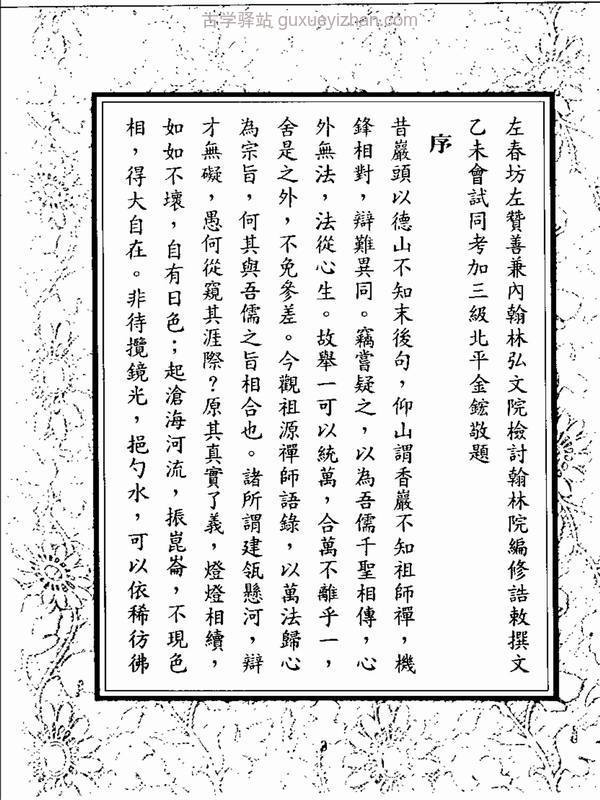 古学驿站 guxueyizhan.com
左春坊左贊善兼內翰林弘文院檢討翰林院編修誥敕撰文
乙未會試同考加三級北平金鋐敬題
序
昔巖頭以德山不知末後句，仰山謂香巖不知祖師禪，機
鋒相對，辯難異同。竊嘗疑之，以為吾儒千聖相傳，心
外無法，法從心生。故舉一可以統萬，合萬不離乎一，
舍是之外，不免參差。今觀祖源禪師語錄，以萬法歸心
為宗旨，何其與吾儒之旨相合也。諸所謂建瓴懸河，辯
才無礙，愚何從窺其涯際？原其真實了義，燈燈相續，
如如不壞，自有日色；起滄海河流，振崑崙，不現色
相，得大自在。非待攬鏡光，挹勺水，可以依稀彷彿